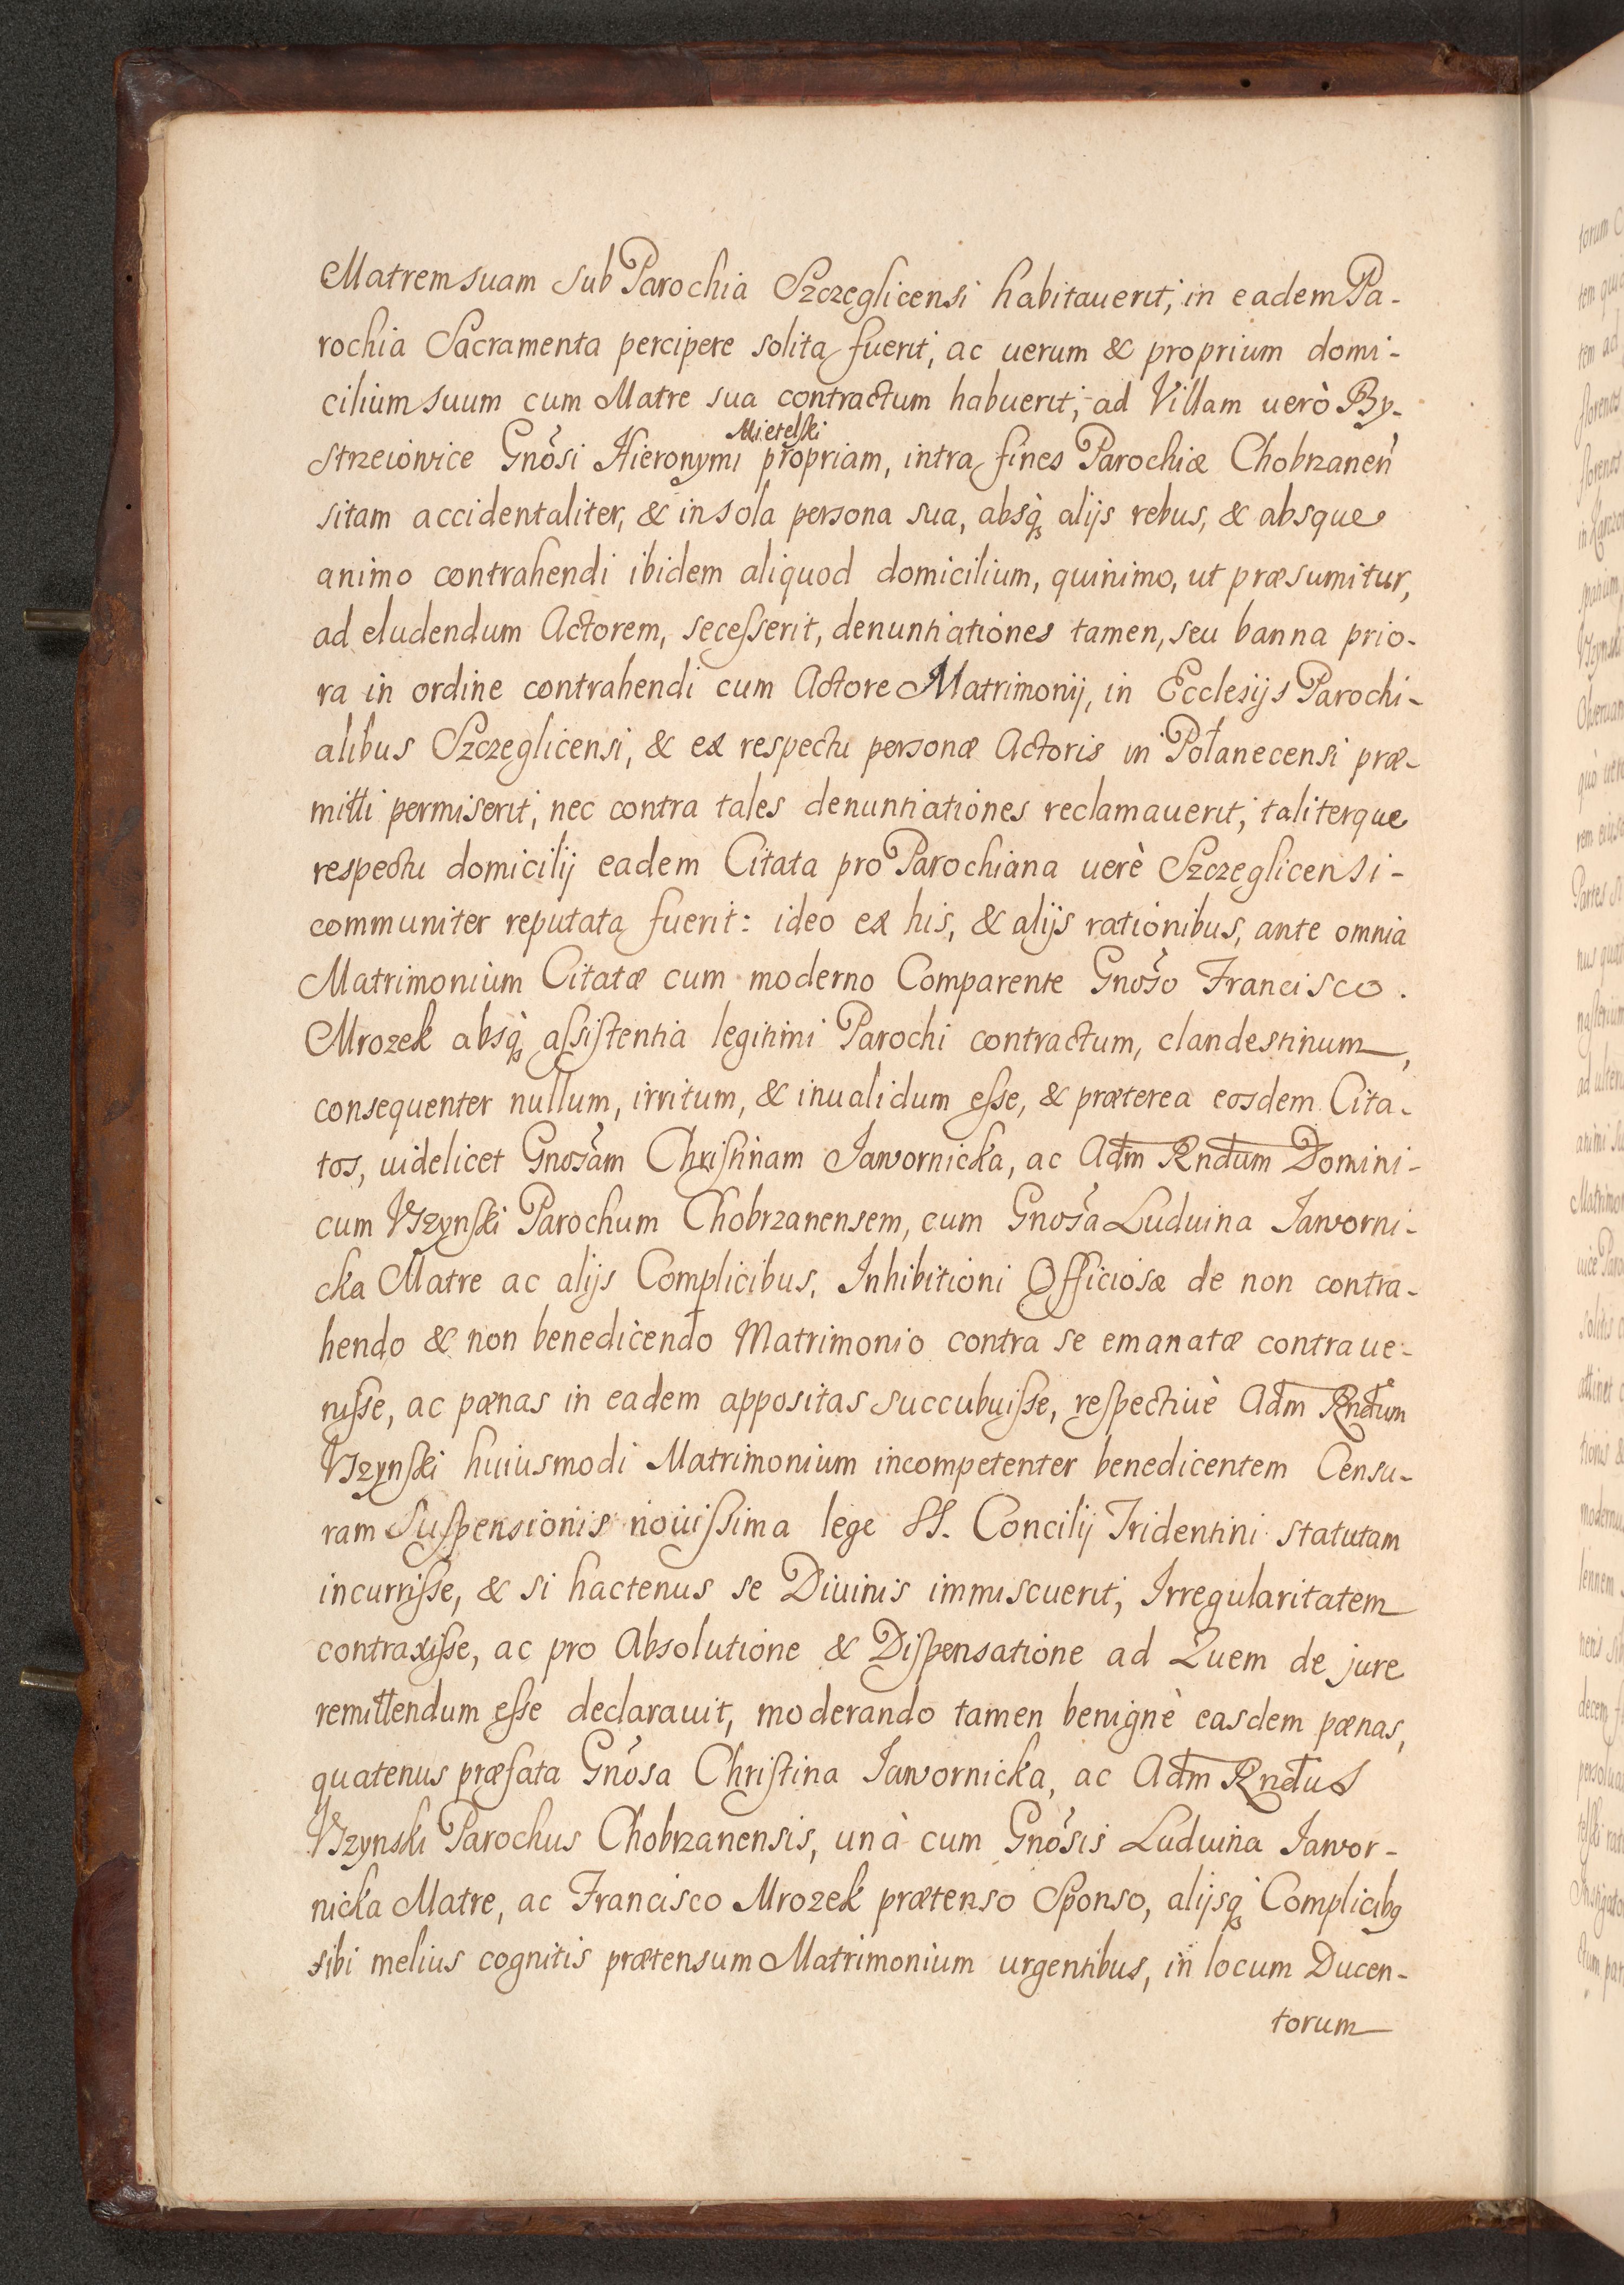 Matrem suam sub Parochia Szczeglicensi habitauerit, in eadem Pa-
rochia Sacramenta percipere solita fuerit, ac uerum & proprium domi-
cilium suum cum Matre sua contractum habuerit; ad Villam uerò By-
Mietelski
strzeiowice Gnõsi Hieronymi propriam, intra fines Parochiæ Chobrzaneñ
sitam accidentaliter, & in sola persona sua, absq̀ȝ alijs rebus, & absque
animo contrahendi ibidem aliquod domicilium, quinimo, ut præsumitur,
ad eludendum Actorem, secesserit, denuntiationes tamen, seu banna prio-
ra in ordine contrahendi cum Actore Matrimonij, in Ecclesijs Parochi-
alibus Szczeglicensi, & ex respectu personæ Actoris in Połanecensi præ-
mitti permiserit, nec contra tales denuntiationes reclamauerit; taliterque
respectu domicilij eadem Citata pro Parochiana uerè Szczeglicensi-
communiter reputata fuerit: ideo ex his, & alijs rationibus, ante omnia
Matrimonium Citatæ cum moderno Comparente Gnõso Francisco.
Mrozek absq̀ȝ assistentia legitimi Parochi contractum, clandestinum,
consequenter nullum, irritum, & inualidum esse, & præterea eosdem Cita-
tos, uidelicet Gnosãm Christinam Jawornicka, ac Adm̃ Rnd̃um Domini-
cum Vszynski Parochum Chobrzanensem, cum Gnosã Luduina Jaworni-
cka Matre ac alijs Complicibus, Inhibitioni Officiosæ de non contra-
hendo & non benedicendo Matrimonio contra se emanatæ contraue-
nisse, ac pænas in eadem appositas succubuisse, respectiuè Adm̃ Rnd̃um
Vszynski huiusmodi Matrimonium incompetenter benedicentem Censu-
ram Suspensionis nouissima lege SS. Concilij Tridentini statutam
incurrisse, & si hactenus se Diuinis immiscuerit, Irregularitatem
contraxisse, ac pro Absolutione & Dispensatione ad Quem de jure
remittendum esse declarauit, moderando tamen benignè easdem pænas,
quatenus præfata Gnõsa Christina Jawornicka, ac Adm̃ Rnd̃us
Vszynski Parochus Chobrzanensis, unà cum Gnõsis Luduina Jawor-
nicka Matre, ac Francisco Mrozek prætenso Sponso, alijsq̀ȝ Complicibꝯ
sibi melius cognitis prætensum Matrimonium urgentibus, in locum Ducen-
torum